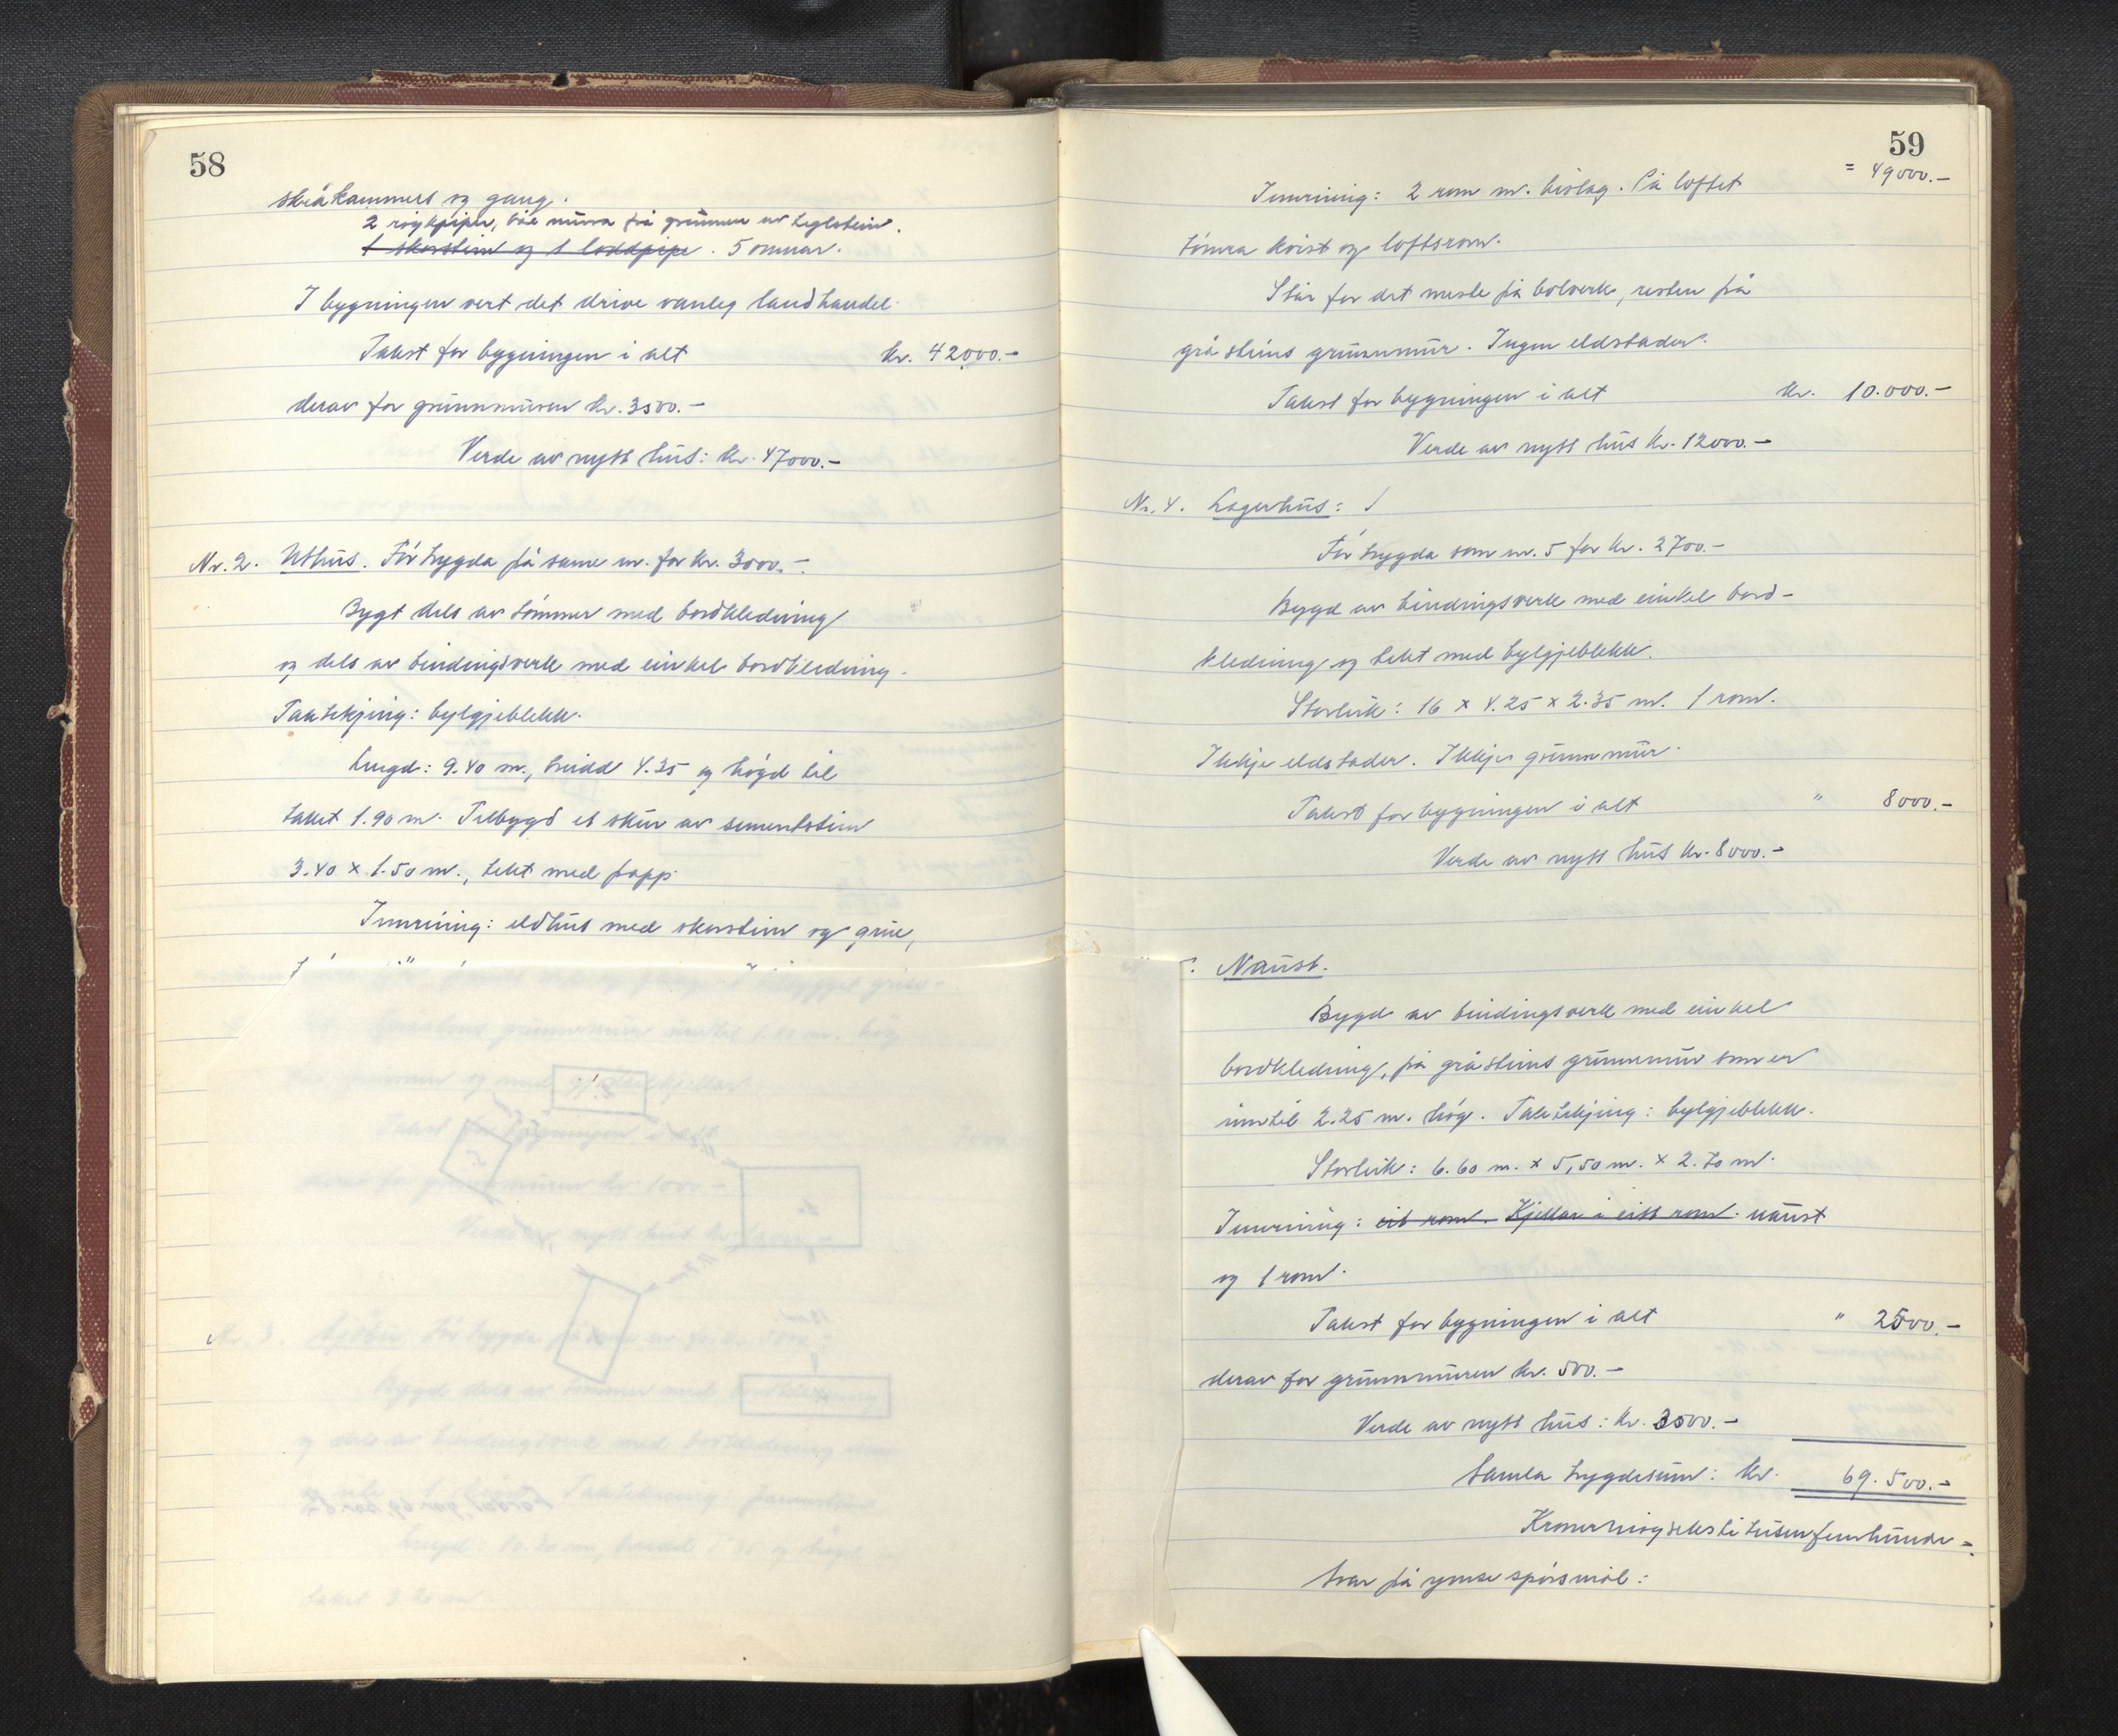 58
skråkammers og gang.
2 røykpiper, båe mura frå grunnen av teglstein.
1 skorstein og 1 loddpipe. 5 omnar.
I bygningen vert det drive vanleg landhandel.
Takst for bygningen i alt kr. 42000.-
derav for grunnmuren kr. 3500.-
Verde av nytt hus: kr. 47000.-
Nr. 2. Uthus. Før trygda på same nr. for kr. 3000.-
Bygt dels av tømmer med bordkledning
og dels av bindingsverk med einkel bordkledning.
Taktekjing: bylgjeblekk.
Lengd: 9.40 m., breidd 4.35 og høgd til
taket 1.90 m. Tilbygd eit skur av sementstein
3.40 x 1.50 m., tekt med papp.
Innreiing: eldhus med skorstein og grue,
59
= 49000.-
Innreiing: 2 rom m. bislag. På loftet
tømra kvist og loftsrom.
Står for det meste på bolverk, resten på
gråsteins grunnmur. Ingen eldstader.
Takst for bygningen i alt kr. 10.000.-
Verde av nytt hus kr. 12000.-
Nr. 4. Lagerhus:
Før trygda som nr. 5 for kr. 2700.-
Bygd av bindingsverk med einkel bord-
kledning og tekt med bylgjeblekk.
Storleik: 16 x 4.25 x 2.35 m. 1 rom.
Ikkje eldstader. Ikkje grunnmur.
Takst for bygningen i alt " 8000.-
Verde av nytt hus kr. 8000.-
Naust.
Bygd av bindingsverk med einkel
bordkledning, på gråsteins grunnmur som er
inntil 2.25 m. høg. Taktekjing: bylgjeblekk.
Storleik: 6.60 m. x 5,50 m. x 2.70 m.
Innreiing: eit rom. Kjellar i eitt rom. naust
og 1 rom.
Takst for bygningen i alt " 2500.-
derav for grunnmuren kr. 500.-
Verde av nytt hus: kr. 3500.-
Samla trygdesum: kr. 69.500.-
Kronerniogsekstitusenfemhundr =
Svar på ymse spørsmål: